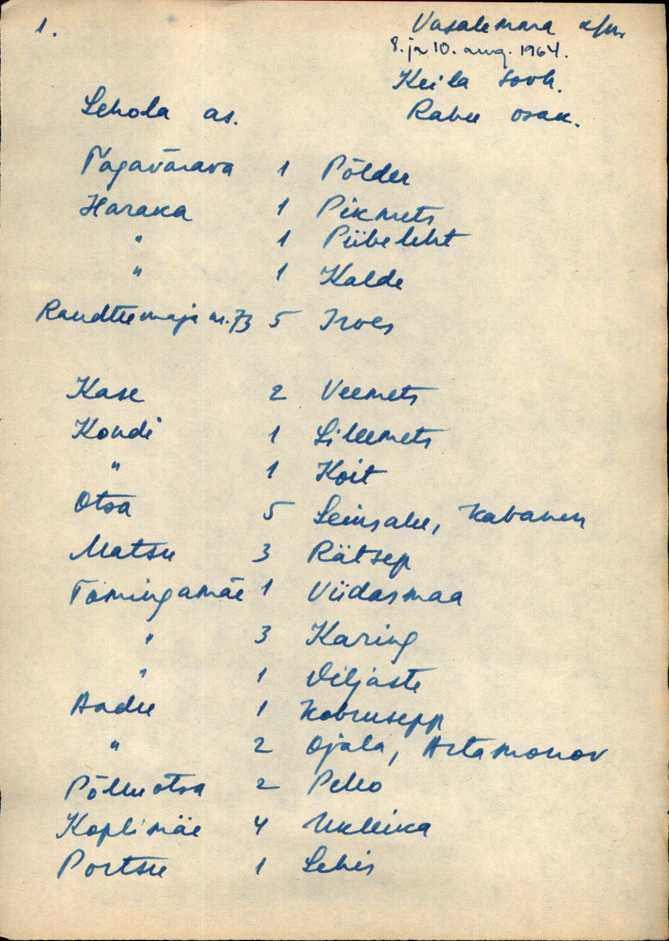 1.
Vasalemma k/n
8. ja 10. aug. 1964.
Keila sovh.
Lehola as. Rabu osak.
Tagavärava 1 Põlder
Haraka 1 Pikmets
" 1 Piibeleht
" 1 Kalde
Raudteemaja nr. 73 5
Kase 2 Veemets
Kondi 1 Lilleemets
" 1 Koit
Otsa 5 Leinsalu, Kabanen
Matsu 3 Rätsep
Toomingamäe 1 Viidasmaa
" 3 Karing
" 1 Viljaste
Aadu 1 Kobrusepp
" 2 Ojala, Artamonov
Põlluotsa 2 Peho
Koplimäe 4 Ukleika
Portsu 1 Lehis